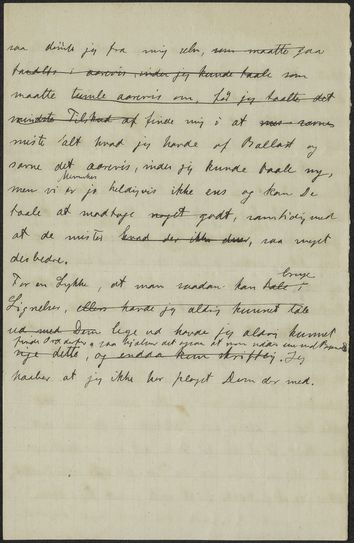 saa dømte jeg fra mig selv, som maatte gaa
tandløs i aarevis, inden jeg kunde taale som
maatte tumle aarevis om, før jeg taalte det
mindste Tilskud af finde mig i at
miste alt hvad jeg havde af Ballast og
savne det aarevis, inden jeg kunde taale ny,
men vi er jo heldigvis ikke ens og kan De
Mennesker
taale at modtage noget godt, samtidig med
at de mister hvad der ikke duer, saa meget
desbedre.
For en Lykke, at man saadan kan tale i
bruge
Lignelser, ellers havde jeg aldrig kunnet tale
ud med Dem lige ud havde jeg aldrig kunnet
finde Ord derfor, saa hjælper det ogsaa at man
sige dette, og endda kun skriftlig. Jeg
haaber at jeg ikke har plaget Dem der med.